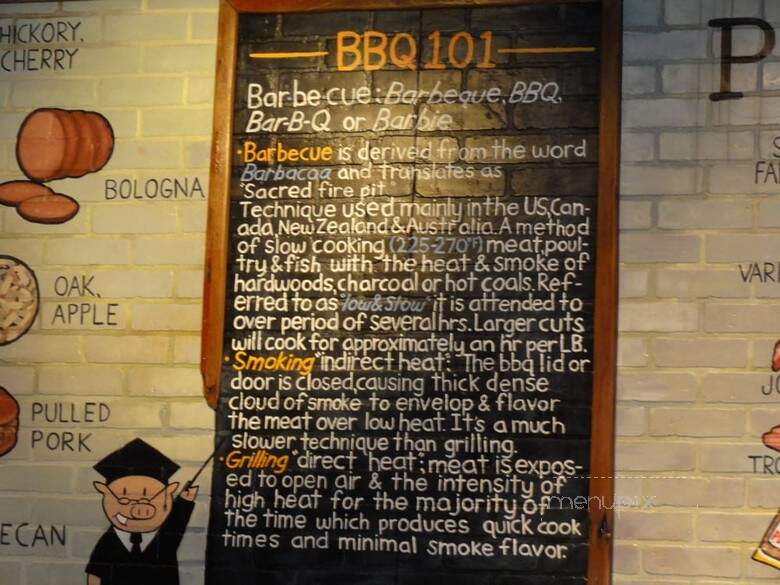 HICKORY,
CHERRY
BOLOGNA
OAK,
APPLE
PULLED
PORK
ECAN
BBQ 101
Bar·be·cue: Barbeque, BBQ,
Bar-B-Q or Barbie
·Barbecue is derived from the word
Barbacaa and translates as
"Sacred fire pit"
Technique used mainly in the US, Can-
ada, New Zealand & Australia. A method
of slow cooking (225-270°F) meat, poul-
try & fish with the heat & smoke of
hardwoods, charcoal or hot coals. Ref-
erred to as "low & slow" it is attended to
over period of several hrs. Larger cuts
will cook for approximately an hr per LB.
·Smoking "indirect heat": The bbq lid or
door is closed, causing thick dense
cloud of smoke to envelop & flavor
the meat over low heat. It's a much
slower technique than grilling.
·Grilling "direct heat"; meat is expos-
ed to open air & the intensity of
high heat for the majority of
the time which produces quick cook
times and minimal smoke flavor.
menupix
P
S
FA
VAR
JO
TRO